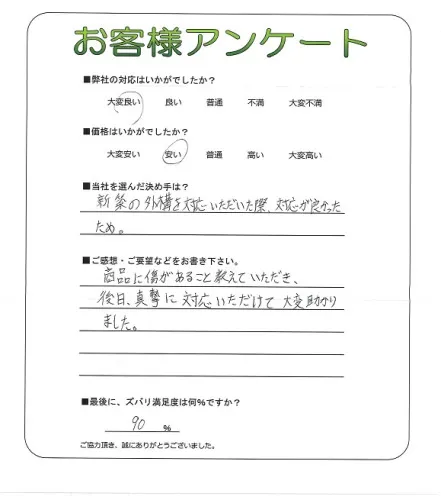 お客様アンケート
■弊社の対応はいかがでしたか？
大変良い 良い 普通 不満 大変不満
■価格はいかがでしたか？
大変安い 安い 普通 高い 大変高い
■当社を選んだ決め手は？
新築の外構を対応いただいた際、対応が良かった
ため。
■ご感想・ご要望などをお書き下さい。
商品に傷があること教えていただき、
後日、真摯に対応いただけて大変助かり
ました。
■最後に、ズバリ満足度は何％ですか？
90 ％
ご協力頂き、誠にありがとうございました。